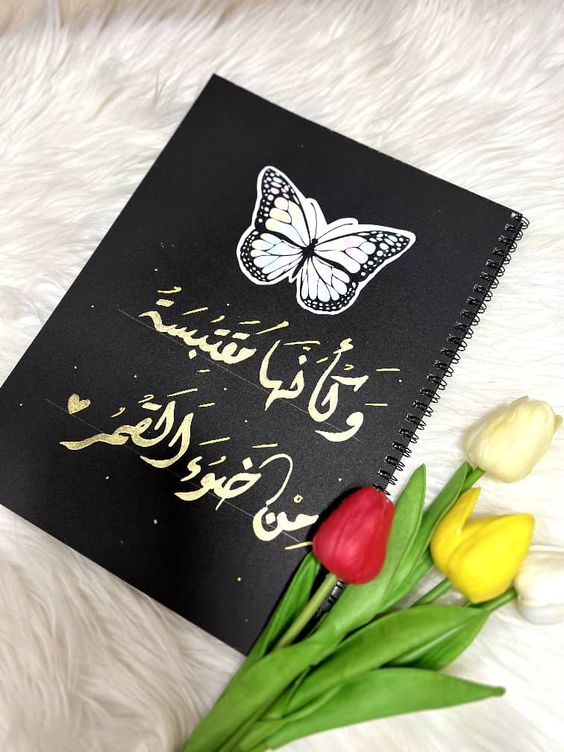 وَكَأَنَّهَا مُقْتَبِسَةٌ
مِنْ ضَوْءِ القَمَر